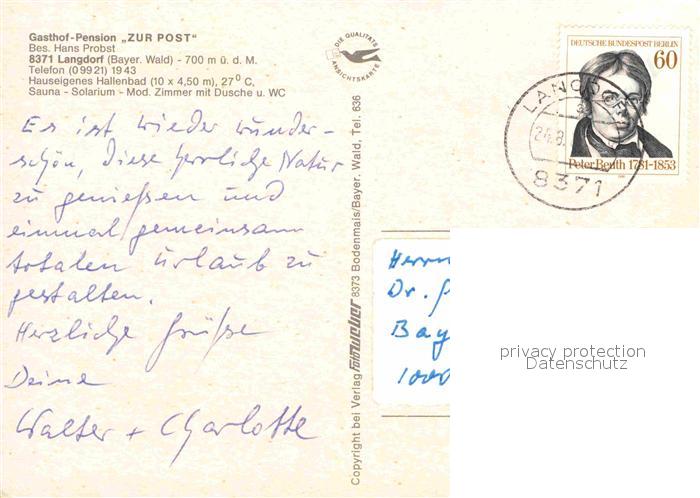 Gasthof-Pension „ZUR POST"
Bes. Hans Probst
8371 Langdorf (Bayer. Wald) - 700 m ü. d. M.
Telefon (0 99 21) 19 43
Hauseigenes Hallenbad (10 x 4,50 m), 27° C,
Sauna - Solarium - Mod. Zimmer mit Dusche u. WC
DIE QUALITÄTS
ANSICHTSKARTE
DEUTSCHE BUNDESPOST BERLIN
60
Peter Beuth 1781-1853
LANGDORF
24.8.
8371
Es ist wieder wunder-
schön, diese herrliche Natur
zu genießen und
einmal gemeinsam
totalen Urlaub zu
gestalten.
Herzliche Grüße
Deine
Walter + Charlotte
Copyright bei Verlag 8373 Bodenmais/Bayer. Wald, Tel. 636
Herrn
Dr.
Bay
1000
privacy protection
Datenschutz